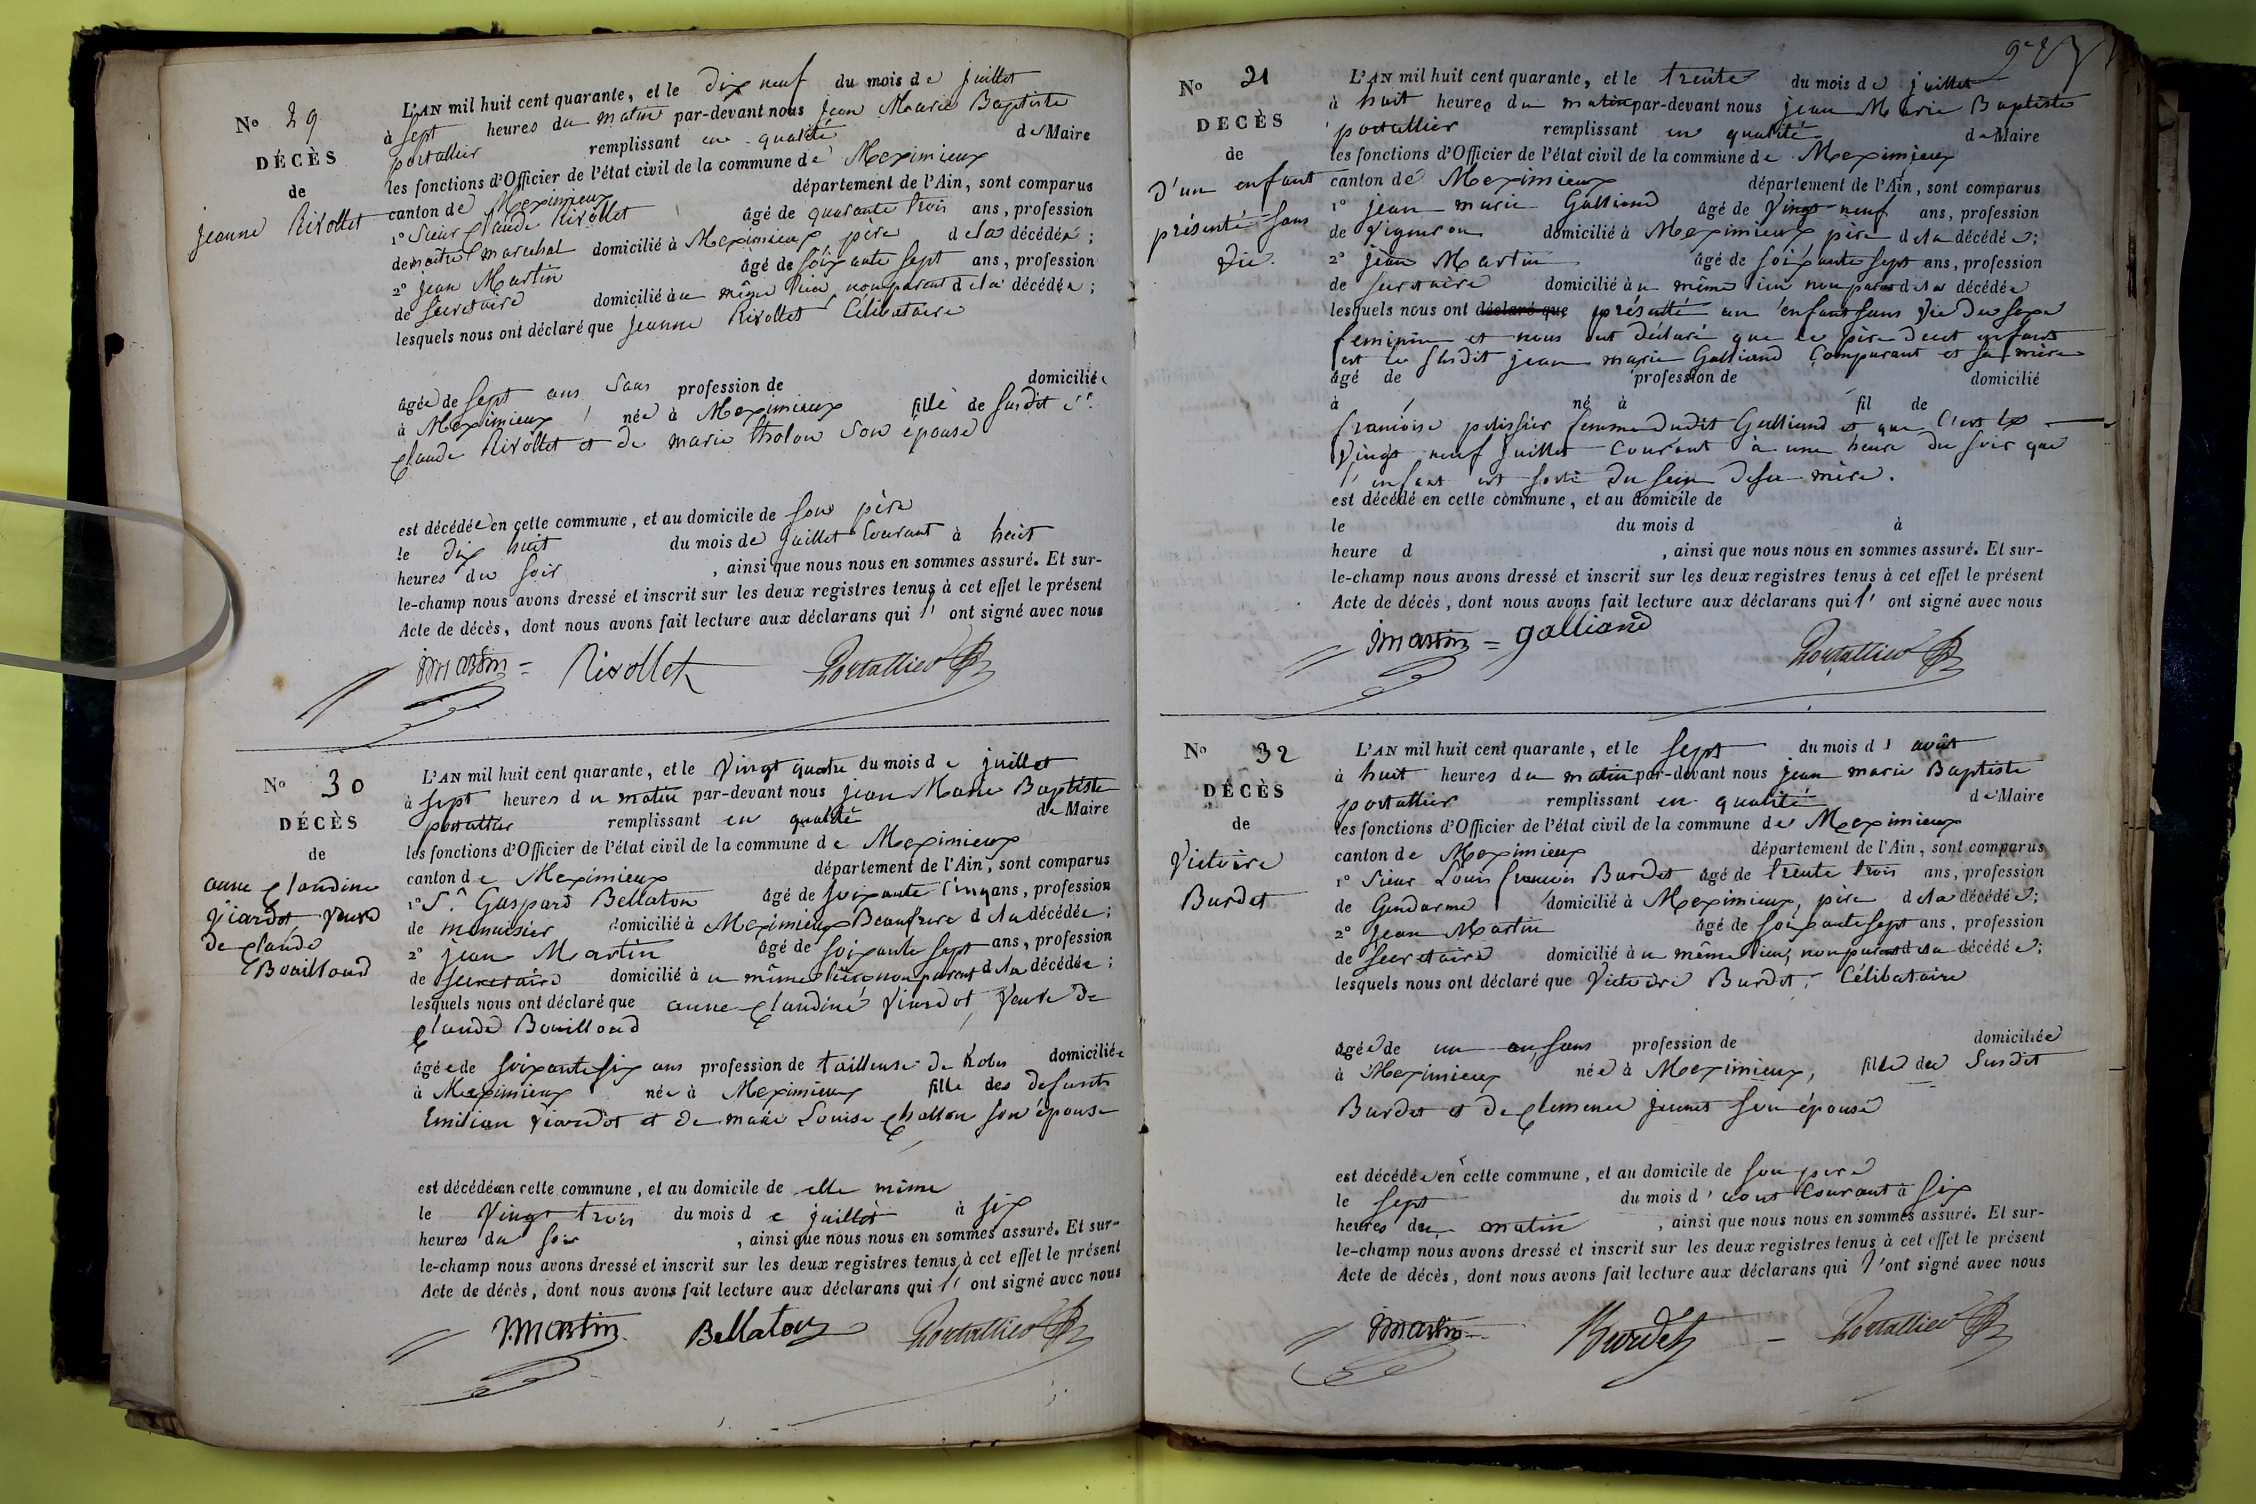 No 29
DÉCÈS
de
jeanne Rivollet
L'AN mil huit cent quarante, et le dix neuf du mois de juillet
à sept heures du matin par-devant nous jean Marie Baptiste
portallier remplissant en qualité de Maire
les fonctions d'Officier de l'état civil de la commune de Meximieux
canton de Meximieux département de l'Ain, sont comparus
1º Sieur Claude Rivollet âgé de quarante trois ans, profession
de maitre marechal domicilié à Meximieux père de la décédée;
2º jean Martin âgé de soixante sept ans, profession
de Secretaire domicilié au même lieu, non parent de la décédée;
lesquels nous ont déclaré que jeanne Rivollet Célibataire
âgée de sept ans sans profession de domiciliée
à Meximieux née à Meximieux fille de susdit Sr.
Claude Rivollet et de marie tholon son épouse
est décédée en cette commune, et au domicile de son père
le dix huit du mois de juillet courant à huit
heures du soir, ainsi que nous nous en sommes assuré. Et sur-
le-champ nous avons dressé et inscrit sur les deux registres tenus à cet effet le présent
Acte de décès, dont nous avons fait lecture aux déclarans qui l' ont signé avec nous
jmartin = Rivollet Portallier
No 30
DÉCÈS
de
anne Claudine
Viardot, veuve
de Claude
Bouilloud
L'AN mil huit cent quarante, et le vingt quatre du mois de juillet
à sept heures du matin par-devant nous jean Marie Baptiste
portallier remplissant en qualité de Maire
les fonctions d'Officier de l'état civil de la commune de Meximieux
canton de Meximieux département de l'Ain, sont comparus
1º Sr. Gaspard Bellaton âgé de soixante cinq ans, profession
de menuisier domicilié à Meximieux Beaufrere de la décédée;
2º jean Martin âgé de soixante sept ans, profession
de secretaire domicilié au même lieu non parent de la décédée;
lesquels nous ont déclaré que anne Claudine Viardot, veuve de
Claude Bouilloud
âgée de soixante six ans profession de tailleuse de Robes domiciliée
à Meximieux née à Meximieux fille des defunts
Emilian Viardot et de marie Louise Challon son épouse
est décédée en cette commune, et au domicile de elle même
le vingt trois du mois de juillet à six
heures du soir, ainsi que nous nous en sommes assuré. Et sur-
le-champ nous avons dressé et inscrit sur les deux registres tenus à cet effet le présent
Acte de décès, dont nous avons fait lecture aux déclarans qui l' ont signé avec nous
jmartin Bellaton Portallier
No 31
DECÈS
de
D'un enfant
présenté sans
vie.
L'AN mil huit cent quarante, et le trente du mois de juillet
à huit heures du matin par-devant nous jean Marie Baptiste
portallier remplissant en qualité de Maire
les fonctions d'Officier de l'état civil de la commune de Meximieux
canton de Meximieux département de l'Ain, sont comparus
1º jean marie Galliand âgé de vingt neuf ans, profession
de vigneron domicilié à Meximieux père de la décédée;
2º jean Martin âgé de soixante sept ans, profession
de secretaire domicilié au même lieu non parent de la décédée
lesquels nous ont déclaré que présenté un enfant sans vie du sexe
feminin et nous ont déclaré que le père de cet enfant
est le susdit jean marie Galliand comparant et sa mère
âgé de profession de domicilié
à né à fil de
francoise pelissier femme dudit Galliand et que c'est le
vingt neuf juillet courant à une heure du soir que
l'enfant est sorti du sein de sa mère.
est décédé en cette commune, et au domicile de
le du mois d à
heure d , ainsi que nous nous en sommes assuré. Et sur-
le-champ nous avons dressé et inscrit sur les deux registres tenus à cet effet le présent
Acte de décès, dont nous avons fait lecture aux déclarans qui l' ont signé avec nous
jmartin = galliand Portallier
No 32
DÉCÈS
de
Victoire
Burdet
L'AN mil huit cent quarante, et le sept du mois d' août
à huit heures du matin par-devant nous jean marie Baptiste
portallier remplissant en qualité de Maire
les fonctions d'Officier de l'état civil de la commune de Meximieux
canton de Meximieux département de l'Ain, sont comparus
1º Sieur Louis francois Burdet âgé de trente trois ans, profession
de Gendarme domicilié à Meximieux, père de la décédée;
2º Jean Martin âgé de soixante sept ans, profession
de secretaire domicilié au même lieu, non parent de la décédée;
lesquels nous ont déclaré que Victoire Burdet, Célibataire
âgée de un an, sans profession de domiciliée
à Meximieux née à Meximieux, fille du Susdit
Burdet et de Clemence jeunet son épouse
est décédée en cette commune, et au domicile de son pere
le sept du mois d' aout courant à six
heures du matin, ainsi que nous nous en sommes assuré. Et sur-
le-champ nous avons dressé et inscrit sur les deux registres tenus à cet effet le présent
Acte de décès, dont nous avons fait lecture aux déclarans qui l'ont signé avec nous
jmartin Burdet Portallier